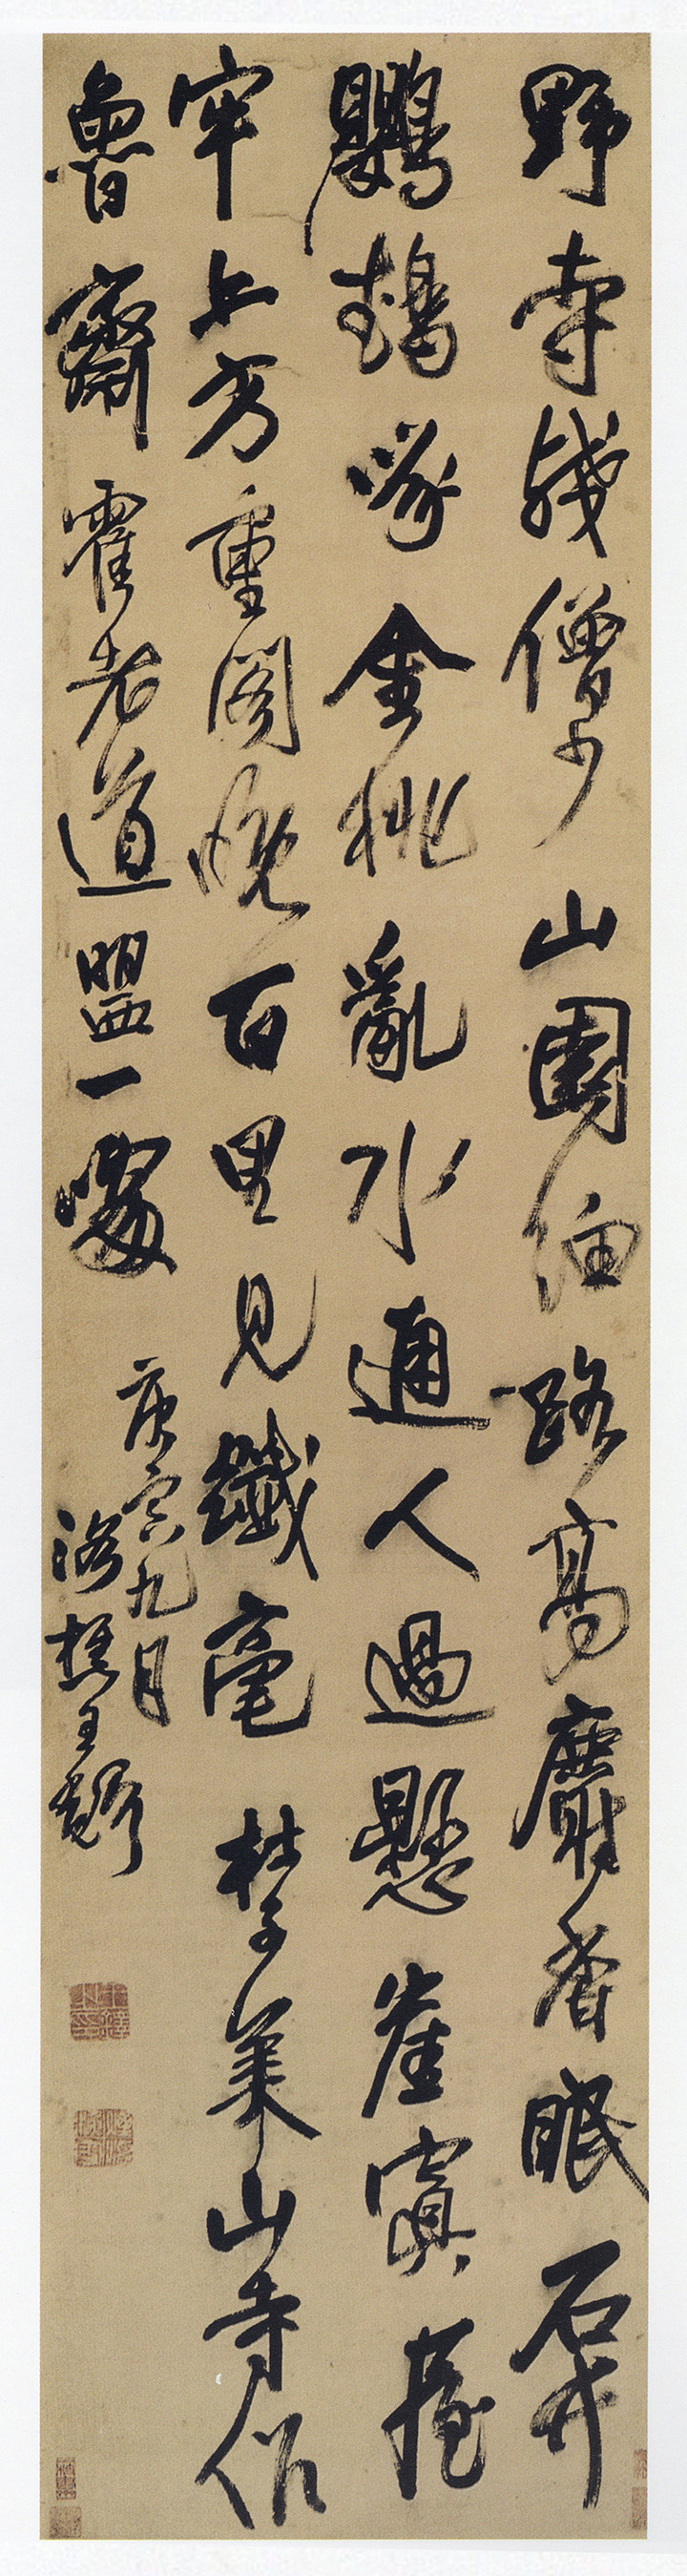 野寺殘僧少山園細路高麝香眠石竹
鸚鵡啄金桃亂水通人過懸崖寘屋
牢上方重閣晚百里見纖毫 杜子美山寺作
魯齋霍老道盟一噱
庚寅九月
洛樵王鐸